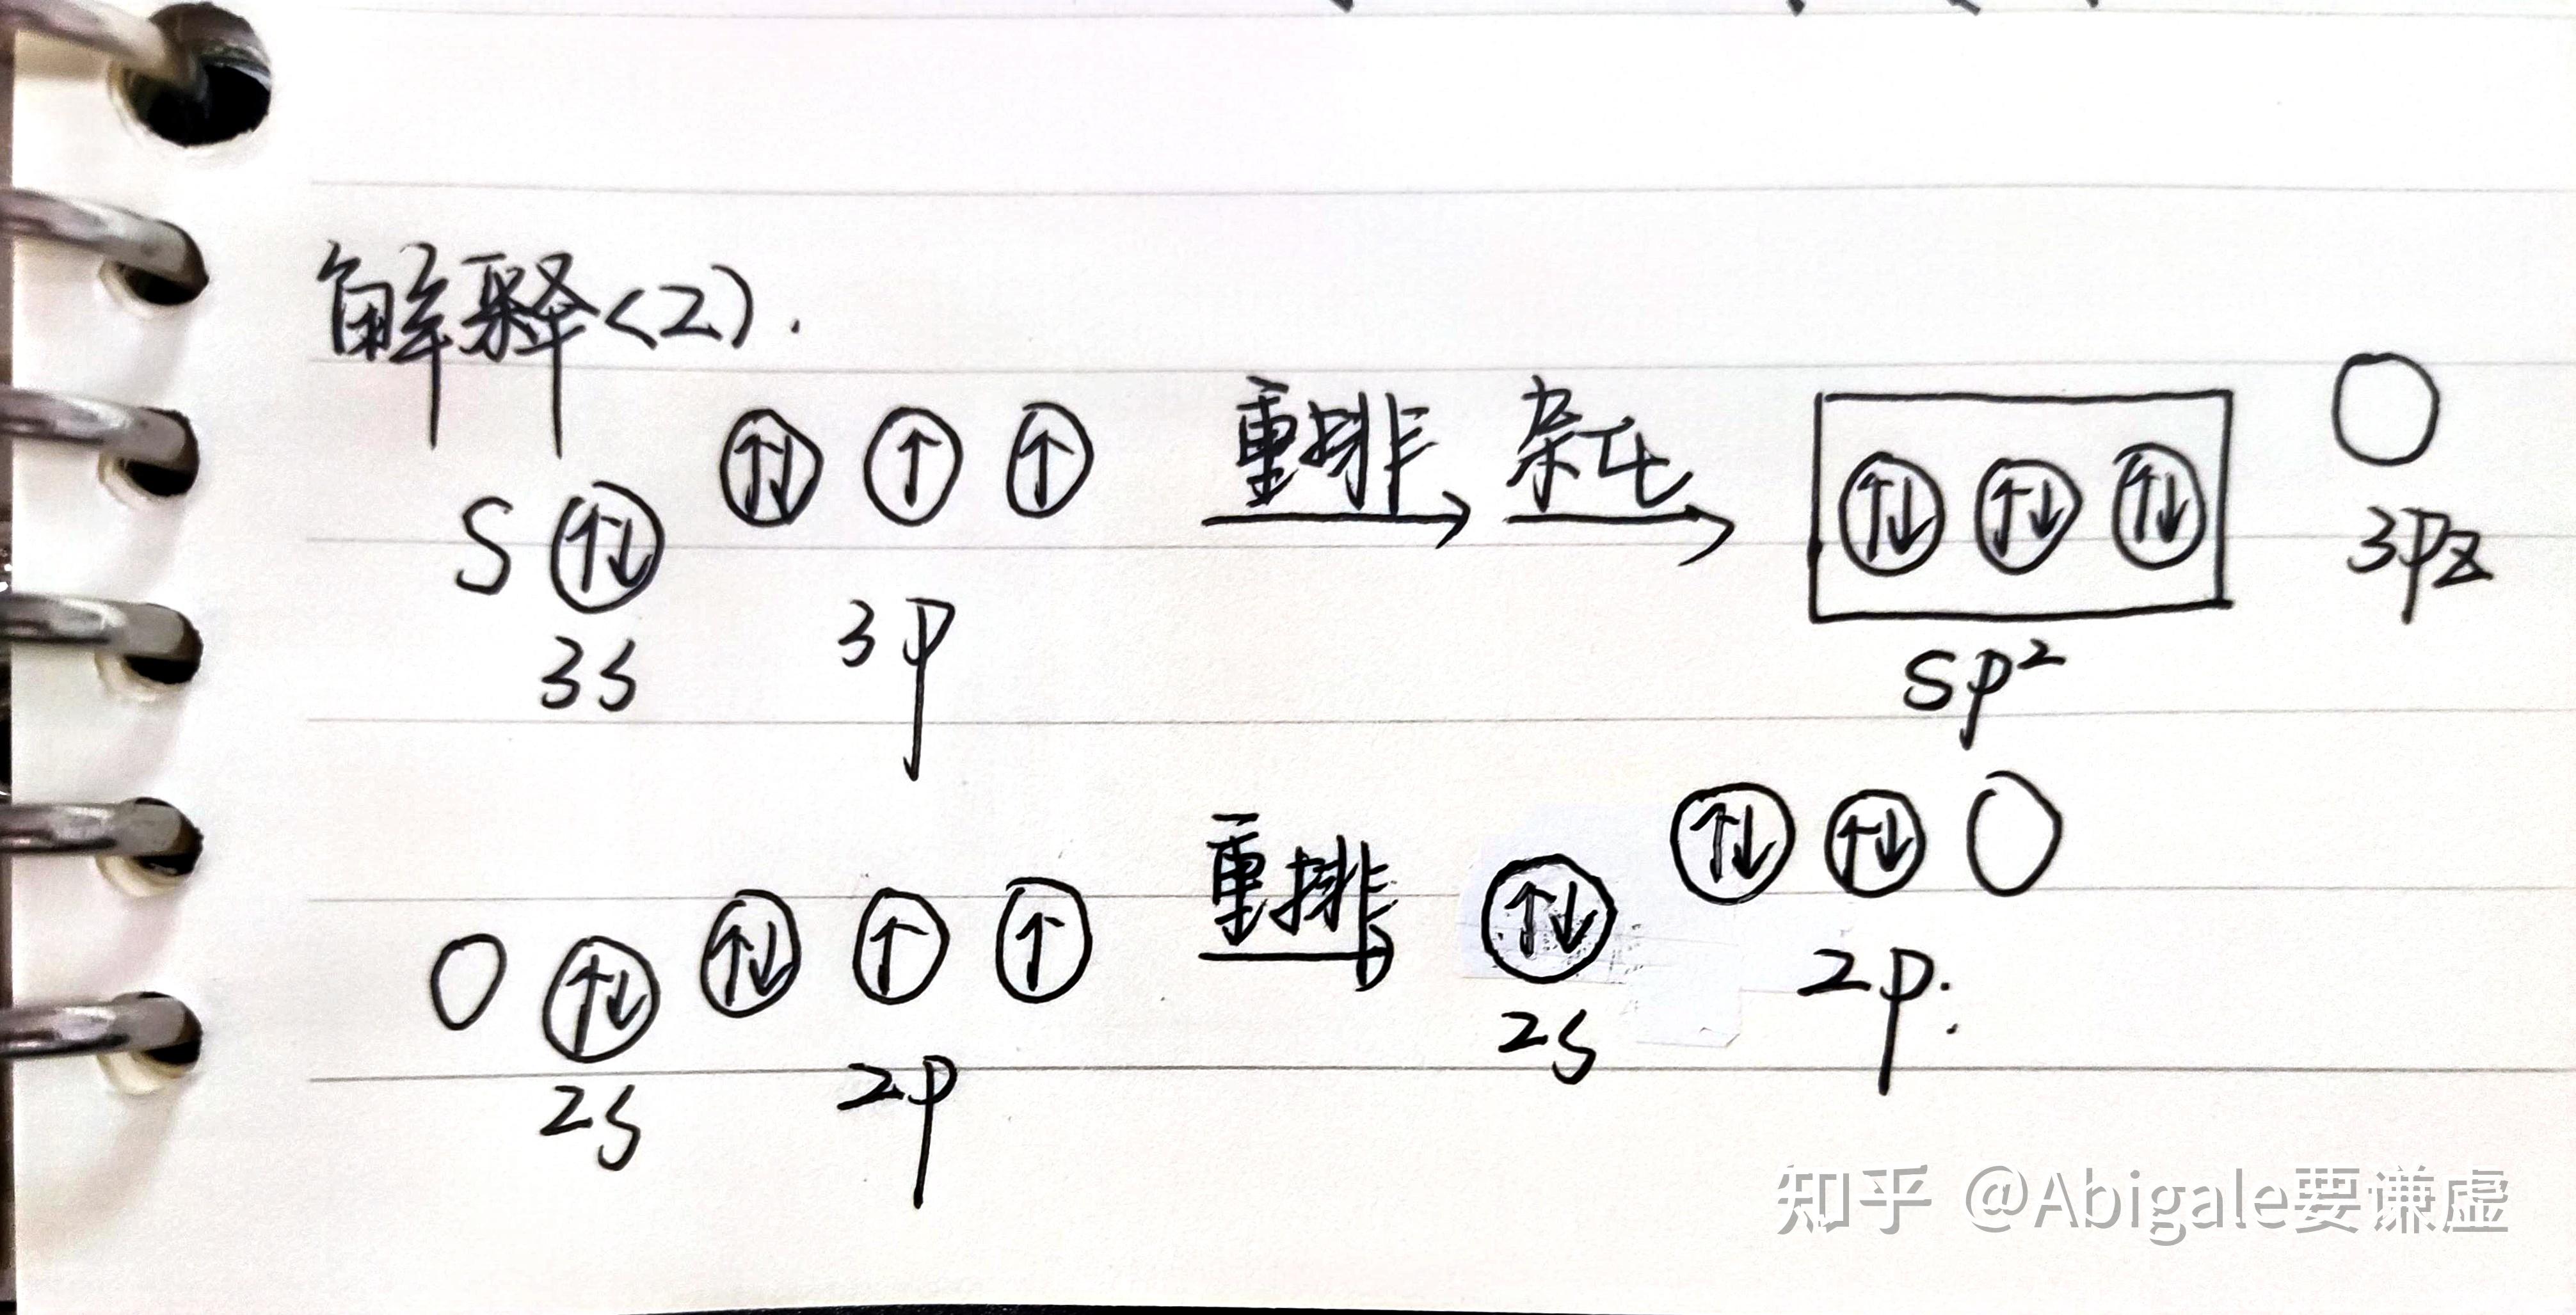 解释(2).
S ⇅ ⇅ ↑ ↑ 重排→ 杂化→ ⇅ ⇅ ⇅ ○
3s 3p sp² 3pz
O ⇅ ⇅ ↑ ↑ 重排→ ⇅ ⇅ ⇅ ○
2s 2p 2s 2p.
知乎 @Abigale要谦虚